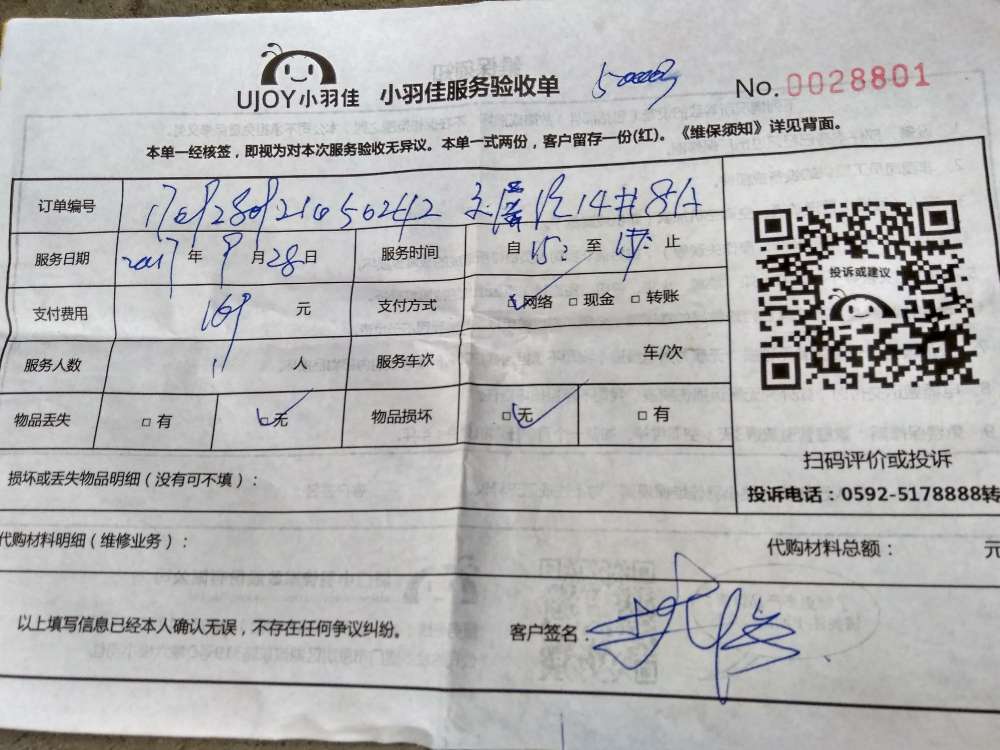 UJOY小羽佳 小羽佳服务验收单 No.0028801
本单一经核签，即视为对本次服务验收无异议。本单一式两份，客户留存一份(红)。《维保须知》详见背面。
订单编号
服务日期 2017年9月28日 服务时间 自15:至17:止
支付费用 169 元 支付方式 □网络 □现金 □转账
服务人数 1 人 服务车次 车/次
物品丢失 □有 □无 物品损坏 □无 □有
投诉或建议
扫码评价或投诉
投诉电话：0592-5178888转
损坏或丢失物品明细（没有可不填）：
代购材料明细（维修业务）： 代购材料总额： 元
以上填写信息已经本人确认无误，不存在任何争议纠纷。 客户签名：